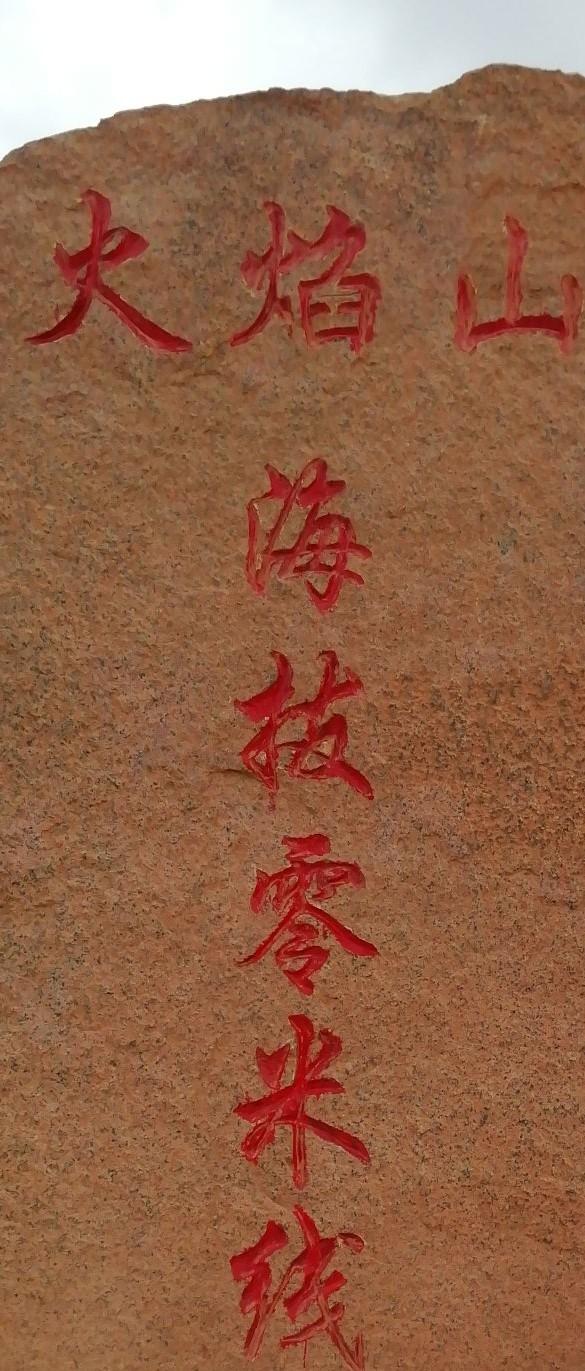 火焰山
海拔零米线